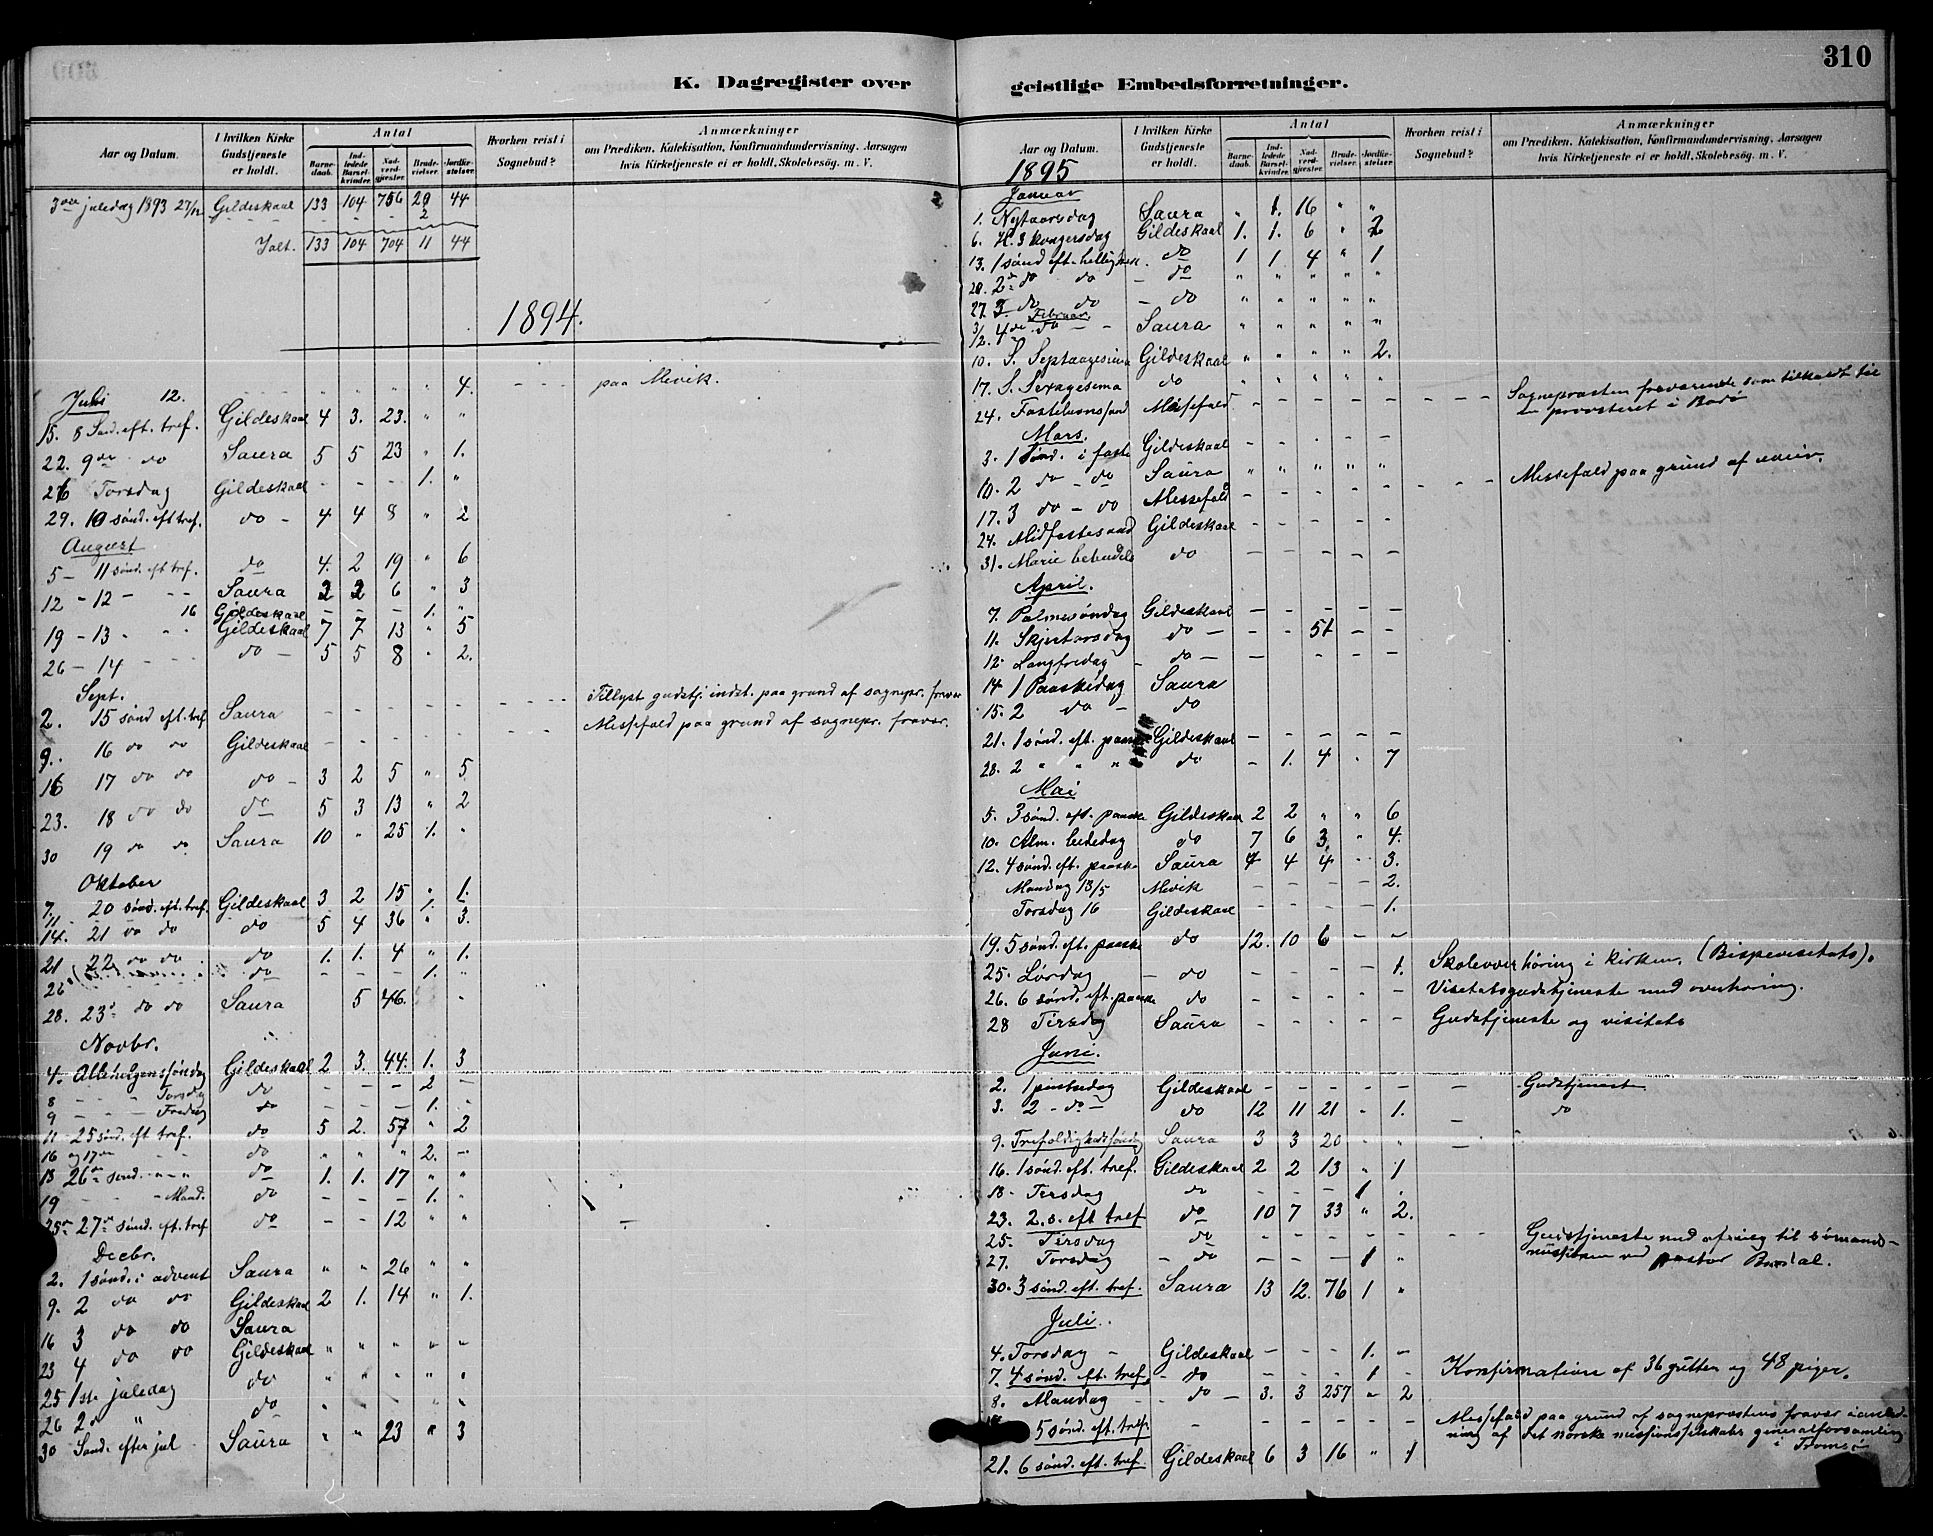 310
K. Dagregister over
Aar og Datum.
I hvilken Kirke Gudstjeneste er holdt.
Antal
Barne-daab.
Ind-ledede Barsel-kvinder.
Nad-verd-gjester.
Brude-vielser.
Jordfæ-stelser.
Hvorhen reist i Sognebud?
Anmærkninger
om Prædiken, Katekisation, Konfirmandundervisning, Aarsagen
hvis Kirketjeneste ei er holdt, Skolebesøg. m. V.
3die juledag 1893 27/12 Gildeskaal 133 104 756 29 44
- - - 2
Ialt. 133 104 704 11 44
1894.
Juli 12. - - - - - 4. - - - paa Mevik.
15. 8 Sønd. eft. tref. Gildeskaal 4 3. 23. " "
22. 9de do Saura 5 5 23 " 1.
26 Torsdag Gildeskaal - - - 1. "
29. 10 sønd. eft tref. do - 4 4 8 " 2
August
5 - 11 sønd. eft tref. do 4. 2 19 " 6
12 - 12 - - - Saura 2 2 6 " 3
16 Gildeskaal - - - 1. "
19 - 13 - - - Gildeskaal 7 7 13 " 5
26 - 14 - - - do - 5 5 8 " 2.
Sept.
2. 15 sønd eft. tref Saura - - - - - - - - Tillyst gudstj. indst. paa grund af sognepr. fravær
9. 16 do do Gildeskaal - - - - - - - Messefald paa grund af sognepr. fravær.
16 17 do do do - 3 2 5 " 5.
23. 18 do do do 5 3 13 " 2
30 19 do do Saura 10 " 25 1. "
Oktober
7. 20 sønd. eft. tref. Gildeskaal 3 2 15 " 1.
11. 1.
14. 21 do do do 5 4 36 " 3.
21 22 do do do 1. 1. 4 " 1.
26 do - - - 1. "
28. 23de do do Saura 5 46. "
Novbr.
4. Allehelgenssøndag Gildeskaal 2 3. 44. 1. 3
8 - - - Torsdag do - - - 2 -
9 - - - Fredag do - - - 1. -
11 25 sønd. eft tref. do 5 2. 57 " 2
16 og 17de - - do " " " 2. -
18 26de sønd. - - - do 1. 1. 17 " "
19 - - - Mand. do - - - 1. "
25de 27de sønd. eft. tref do - - 12 " "
Decbr.
2. 1 sønd. i advent Saura " " 26 " "
9. 2 do do Gildeskaal 2 1. 14 " 1.
16 3 do do Saura
23 4 do do Gildeskaal " " " " "
25 1ste juledag do " " " " "
26 2d " do " " " " "
30 Sønd. efter jul Saura " " 23 " 3
geistlige Embedsforretninger.
Aar og Datum.
I hvilken Kirke Gudstjeneste er holdt.
Antal
Barne-daab.
Ind-ledede Barsel-kvinder.
Nad-verd-gjester.
Brude-vielser.
Jordfæ-stelser.
Hvorhen reist i Sognebud?
Anmærkninger
om Prædiken, Katekisation, Konfirmandundervisning, Aarsagen
hvis Kirketjeneste ei er holdt, Skolebesøg. m. V.
1895
Januar
1. Nytaarsdag Saura " 1. 16 " "
6. H. 3 kongersdag Gildeskaal 1. 1. 6 " 2
13. 1 sønd eft. helligtrek. do 1 1. 4 " 1
20. 2de do do - do " " " " "
27. 3 do do - do " " " " "
Februar
3/2. 4de do - - Saura " " " " "
10. S. Septuagesima Gildeskaal " " " " 2.
17. S. Sexagesima do " " " " "
24. Fastelavnssønd Messefald. - - - - - - - - Sognepræsten fraværende som tilkaldt til
provsteret i Bodø
Mars.
3. 1 sønd. i faste Gildeskaal - - - - -
10. 2 do - do Saura " " " " "
17. 3 do - do Messefald - - - - - - - - Messefald paa grund af uveir.
24. Midfastesønd Gildeskaal - - - - -
31. Marie bebudels do - - - - -
April.
7. Palmesøndag Gildeskaal - - - - -
11. Skjærtorsdag do - - - 51 - -
12. Langfredag - do - - - - - -
14 1 Paaskedag Saura
15. 2 do - do
21. 1 sønd. eft. paaske Gildeskaal - - - - -
28. 2 " " " do - 1. 4 " 7
Mai
5. 3 sønd. eft. paaske Gildeskaal 2 2 " " 6
10. Alm. bededag do 7 6 3. " 4.
12. 4 sønd. eft. paaske Saura 4 4 4 " 3.
Mandag 13/5 Mevik - - - - 2.
Torsdag 16 Gildeskaal - - - - 1.
19. 5 sønd. eft. paaske do 12. 10 6 - -
25. Lørdag - do - - - - 1. Skoleoverhøring i kirken. (Bispevisitats).
26. 6 sønd. eft. paaske do - - - - - Visitatsgudstjeneste med overhøring.
28 Tirsdag Saura - - - - - Gudstjeneste og visitats
Juni.
2. 1 pintsedag Gildeskaal - - - - - - Gudstjenest
3. 2 - do - do 12 11 21 " 1. - do
9. Trefoldighedssøndag Saura 3 3 20 " " -
16. 1 sønd. eft. tref. Gildeskaal 2 2 13 " 1
18. Tirsdag do - - - 1 .
23. 2. s. eft tref do 10 7 33 " 2.
25. Tirsdag do - - - - - - - Gudstjeneste med ofring til sømands-
27. Torsdag - do - - - 1 " missionen ved pastor Bardal.
30. 3 sønd. eft. tref. Saura 13 12. 76 1 "
Juli.
4. Torsdag - Gildeskaal - - - 1. -
7. 4 sønd. eft. tref. - do - - - 1 - Konfirmation af 36 gutter og 48 piger.
8. Mandag - do - 3. 3 257 " 2
5 sønd. eft. tref. - - - - - - Messefald paa grund af sognepræstens fravær i anled-
ning af det norske missionsselskabs generalforsamling
i Tromsø
21. 6 sønd. eft. tref. Gildeskaal 6 3 16 " 1